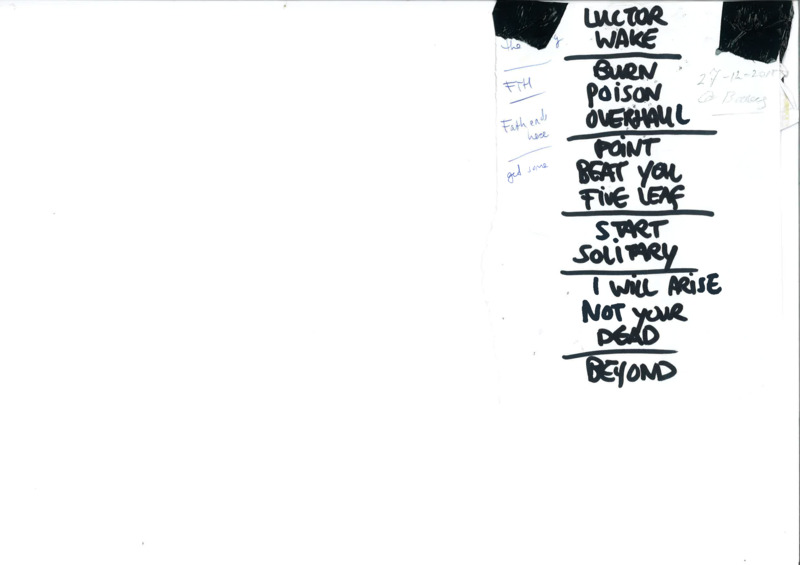 LUCTOR
WAKE
BURN
POISON
OVERHAUL
POINT
BEAT YOU
FIVE LEAF
START
SOLITARY
I WILL ARISE
NOT YOUR
DEAD
BEYOND
the
FTH
Faith ends
here
get some
27-12-2015